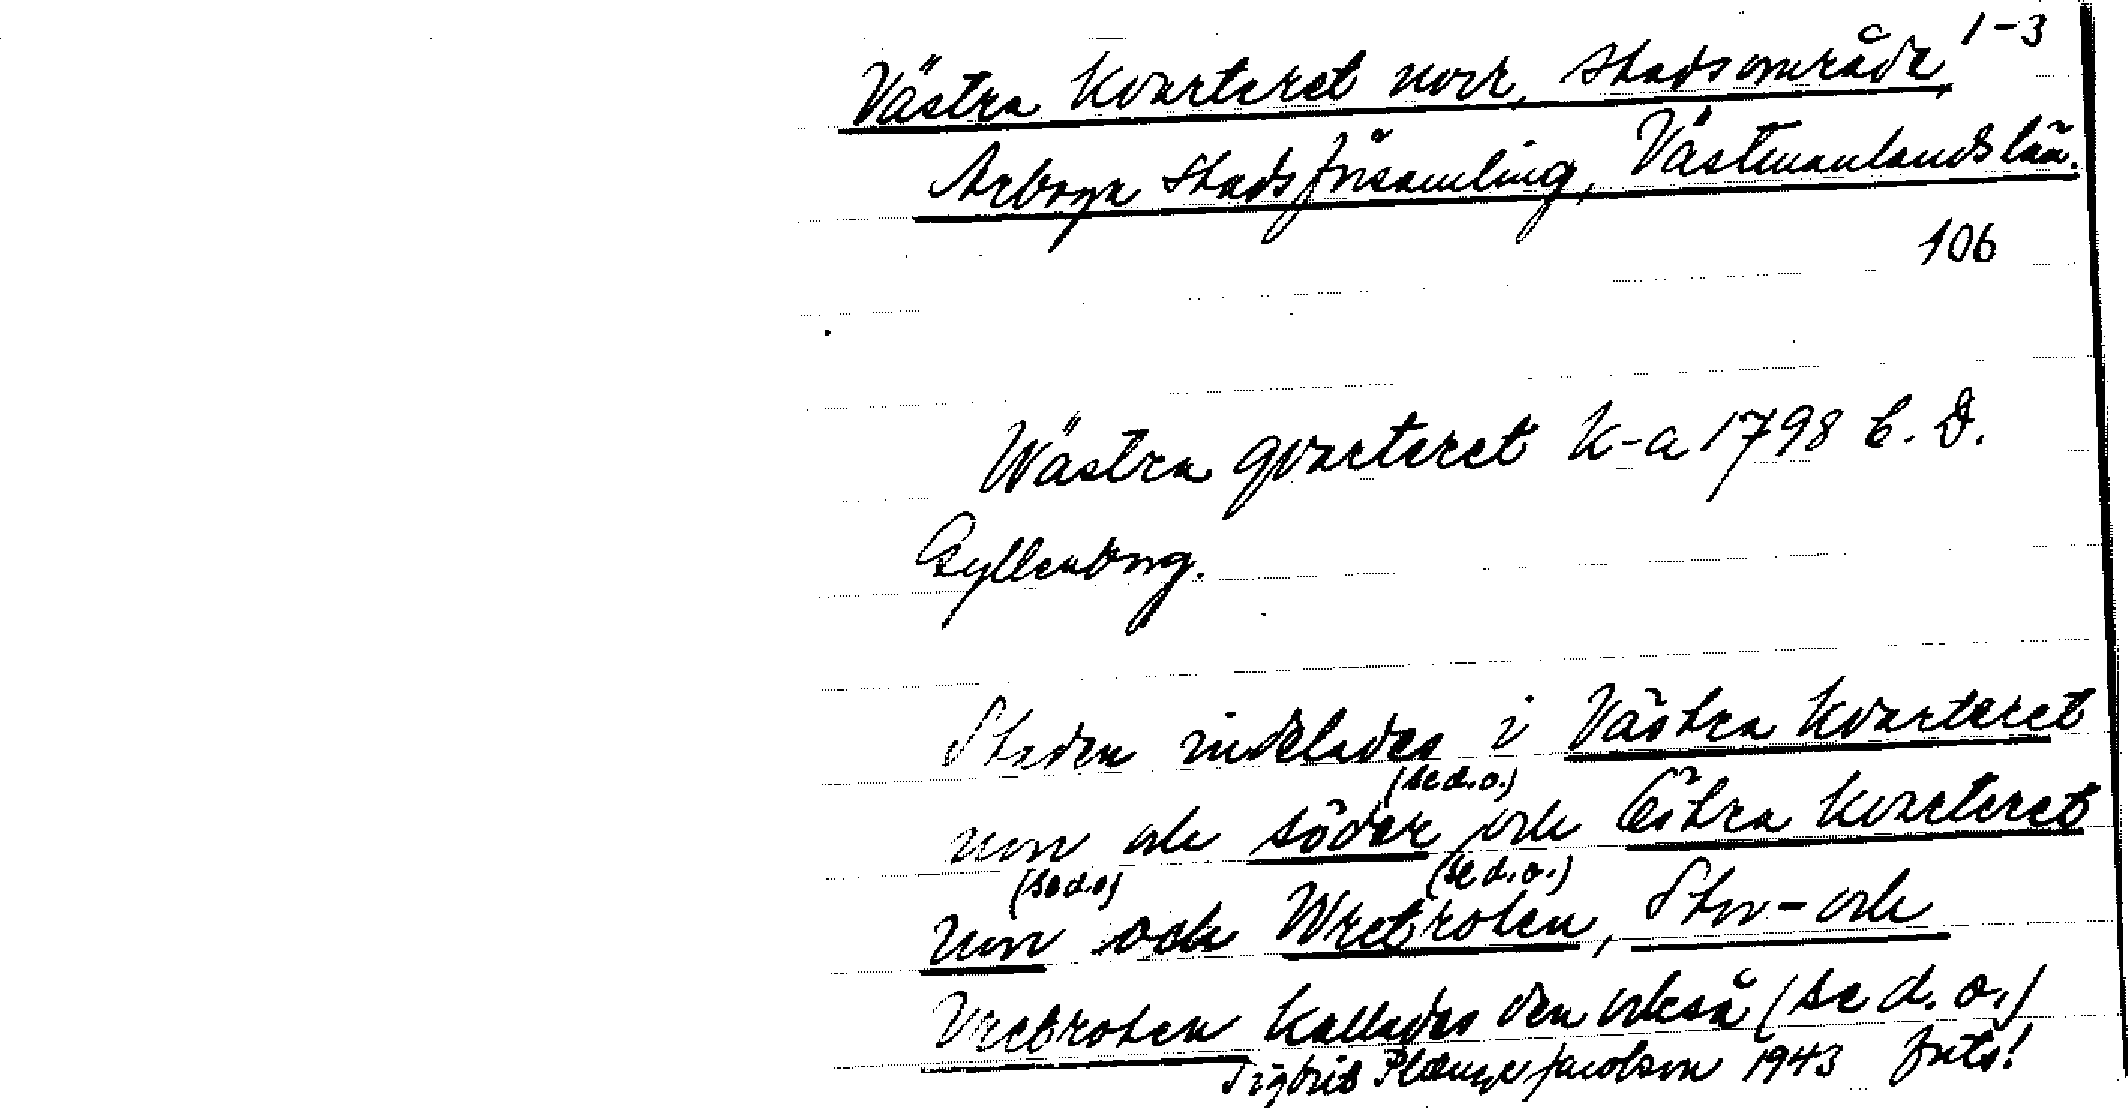 1-3
Västra Kvarteret norr, stadsområde,
Arboga Stadsförsamling, Västmanlands län.
106
Wästra qvarteret K-a 1798 C. D.
Gyllenborg.
Staden indelades i Västra Kvarteret
(se d.o.)
norr och söder och Östra Kvarteret
(se d.o) (se d.o.)
norr och Wretroten, Stor- och
Vretroten kallades den också (se d. o.)
Sigbrit Plænge Jacobson 1943 forts!